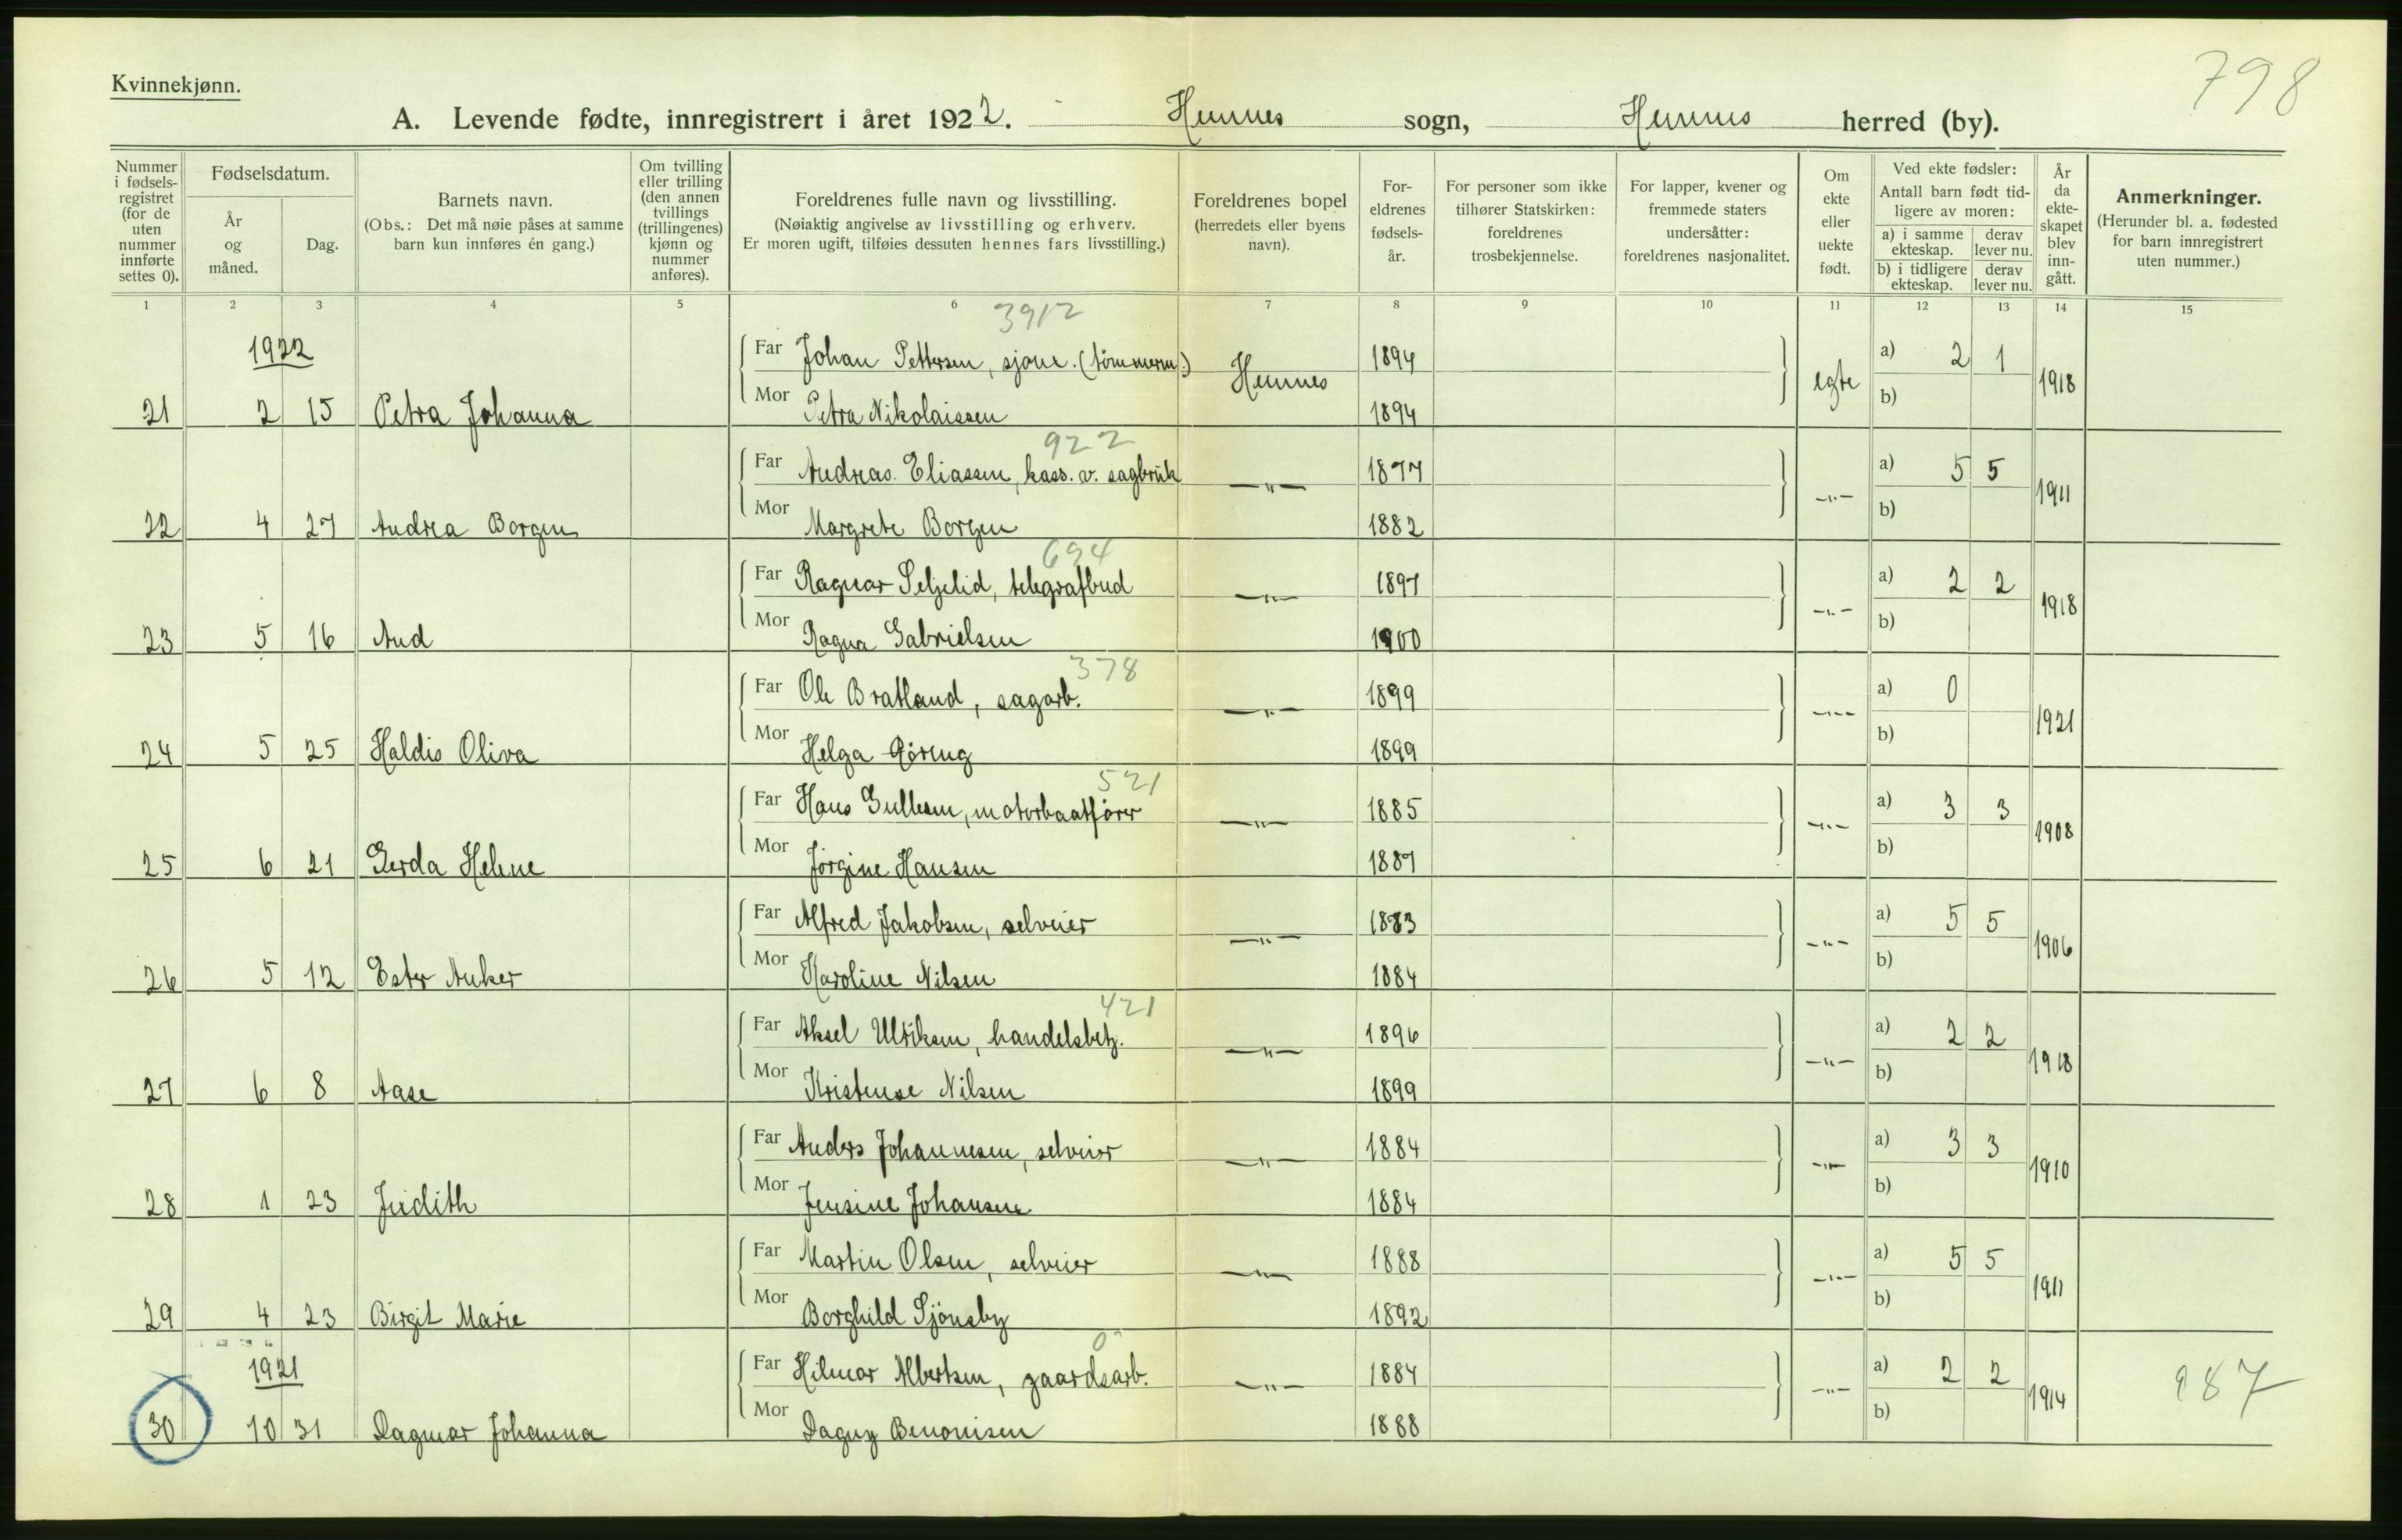 798
Kvinnekjønn.
A. Levende fødte, innregistrert i året 1922. Hemnes sogn, Hemnes herred (by).
Nummer i fødsels-registret (for de uten nummer innførte settes 0).
Fødselsdatum.
År og måned.
Dag.
Barnets navn.
(Obs.: Det må nøie påses at samme barn kun innføres én gang.)
Om tvilling eller trilling (den annen tvillings (trillingenes) kjønn og nummer anføres).
Foreldrenes fulle navn og livsstilling.
(Nøiaktig angivelse av livsstilling og erhverv.
Er moren ugift, tilføies dessuten hennes fars livsstilling.)
Foreldrenes bopel (herredets eller byens navn).
For-eldrenes fødsels-år.
For personer som ikke tilhører Statskirken: foreldrenes trosbekjennelse.
For lapper, kvener og fremmede staters undersåtter: foreldrenes nasjonalitet.
Om ekte eller uekte født.
Ved ekte fødsler:
Antall barn født tid-ligere av moren:
a) i samme ekteskap. derav lever nu.
b) i tidligere ekteskap. derav lever nu.
År da ekte-skapet blev inn-gått.
Anmerkninger.
(Herunder bl. a. fødested for barn innregistrert uten nummer.)
1 2 3 4 5 6 7 8 9 10 11 12 13 14 15
3912
1922
Far Johan Pettersen, sjøm. (tømmerm.) Hemnes 1894 egte a) 2 1 1918
21 2 15 Petra Johanna Mor Petra Nikolaissen 1894 b)
922
Far Andreas Eliassen, kass. v. sagbruk —"— 1877 —"— a) 5 5 1911
22 4 27 Andrea Borgen Mor Margrete Borgen 1882 b)
694
Far Ragnar Seljelid, telegrafbud —"— 1897 —"— a) 2 2 1918
23 5 16 Aud Mor Ragna Gabrielsen 1900 b)
378
Far Ole Bratland, sagarb. —"— 1899 —"— a) 0 1921
24 5 25 Haldis Oliva Mor Helga 1899 b)
521
Far Hans Gullesen, motorbaatfører —"— 1885 —"— a) 3 3 1908
25 6 21 Gerda Helene Mor Jørgine Hansen 1887 b)
Far Alfred Jakobsen, selveier —"— 1883 —"— a) 5 5 1906
26 5 12 Ester Anker Mor Karoline Nilsen 1884 b)
421
Far Aksel Ulriksen, handelsbetj. —"— 1896 —"— a) 2 2 1918
27 6 8 Aase Mor Kristense Nilsen 1899 b)
Far Anders Johannesen, selveier —"— 1884 —"— a) 3 3 1910
28 1 23 Judith Mor Jensine Johansen 1884 b)
Far Martin Olsen, selveier —"— 1888 —"— a) 5 5 1911
29 4 23 Birgit Marie Mor Borghild Sjönsby 1892 b)
0
1921
Far Hilmar Albertsen, gaardsarb. —"— 1884 —"— a) 2 2 1914 987
30 10 31 Dagmar Johanna Mor Dagny Benonisen 1888 b)